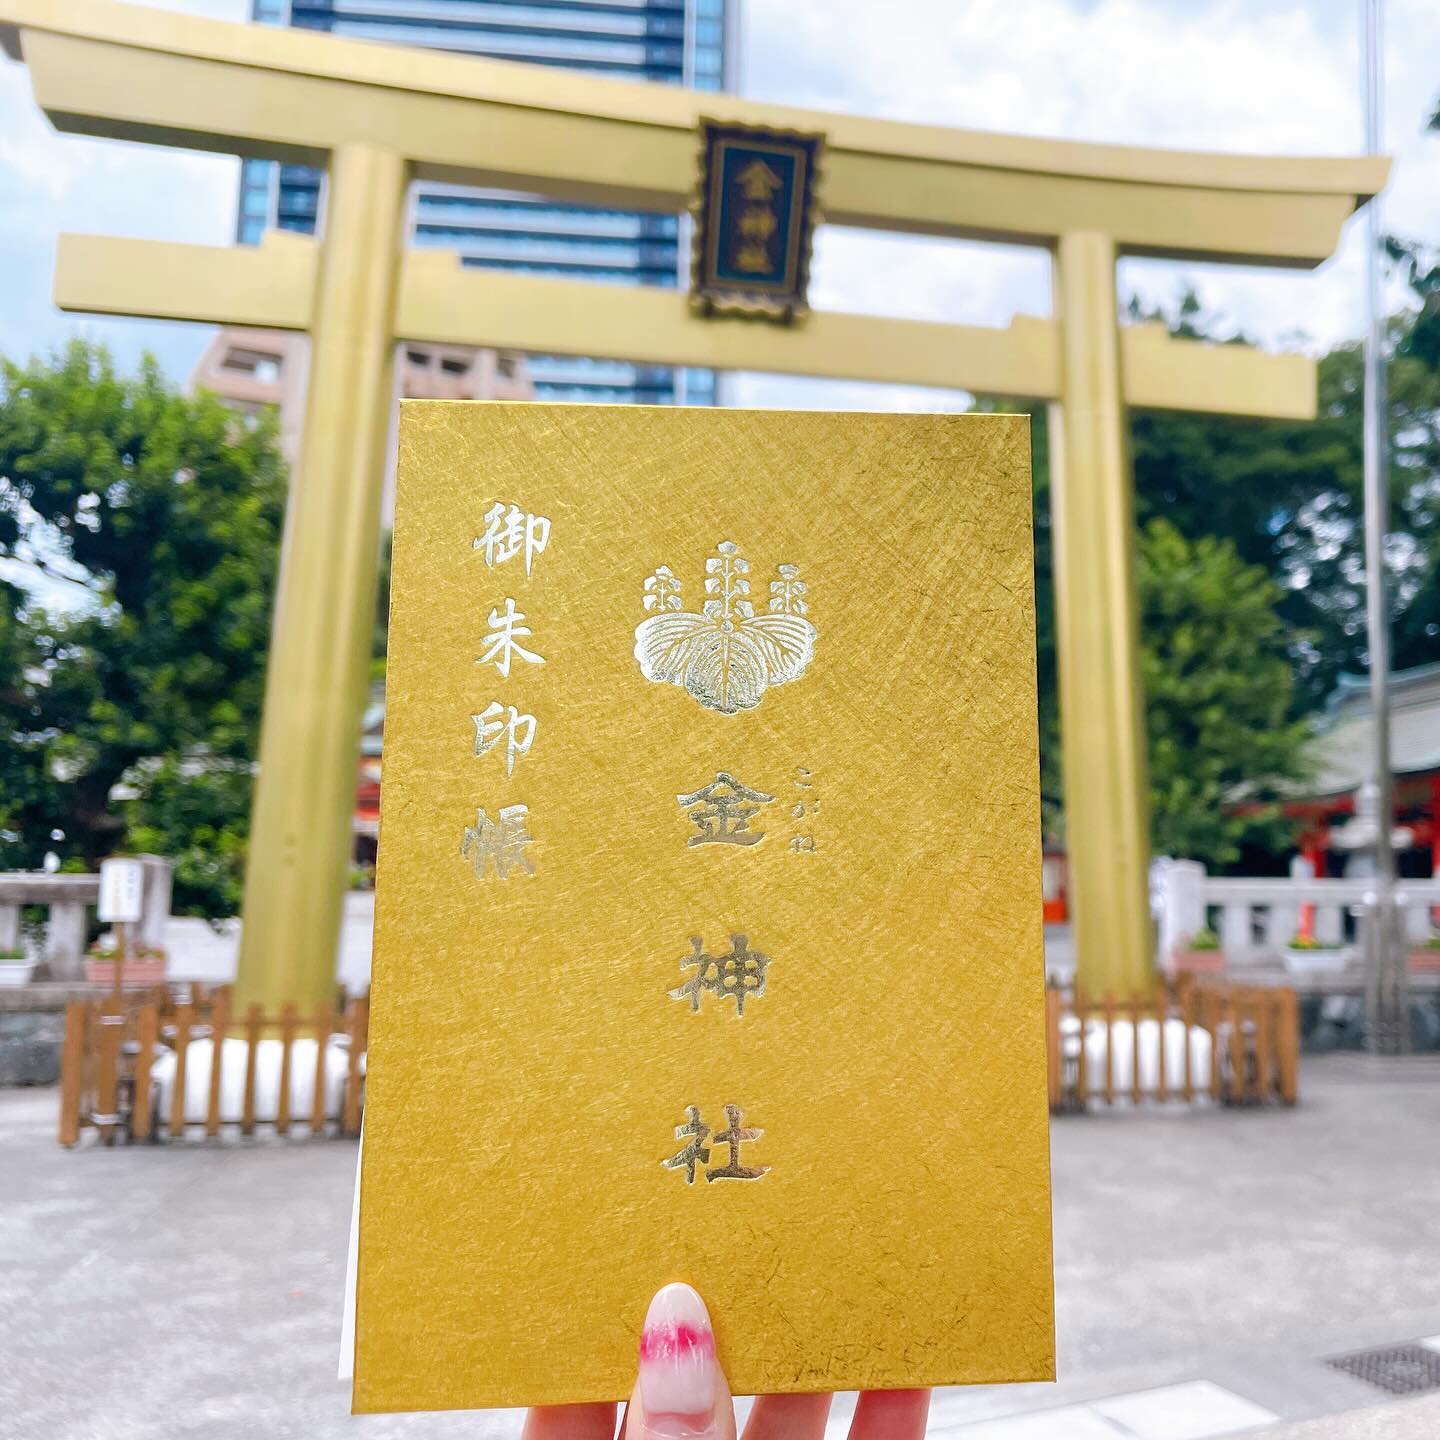 金神社
御朱印帳
金神社
こがね